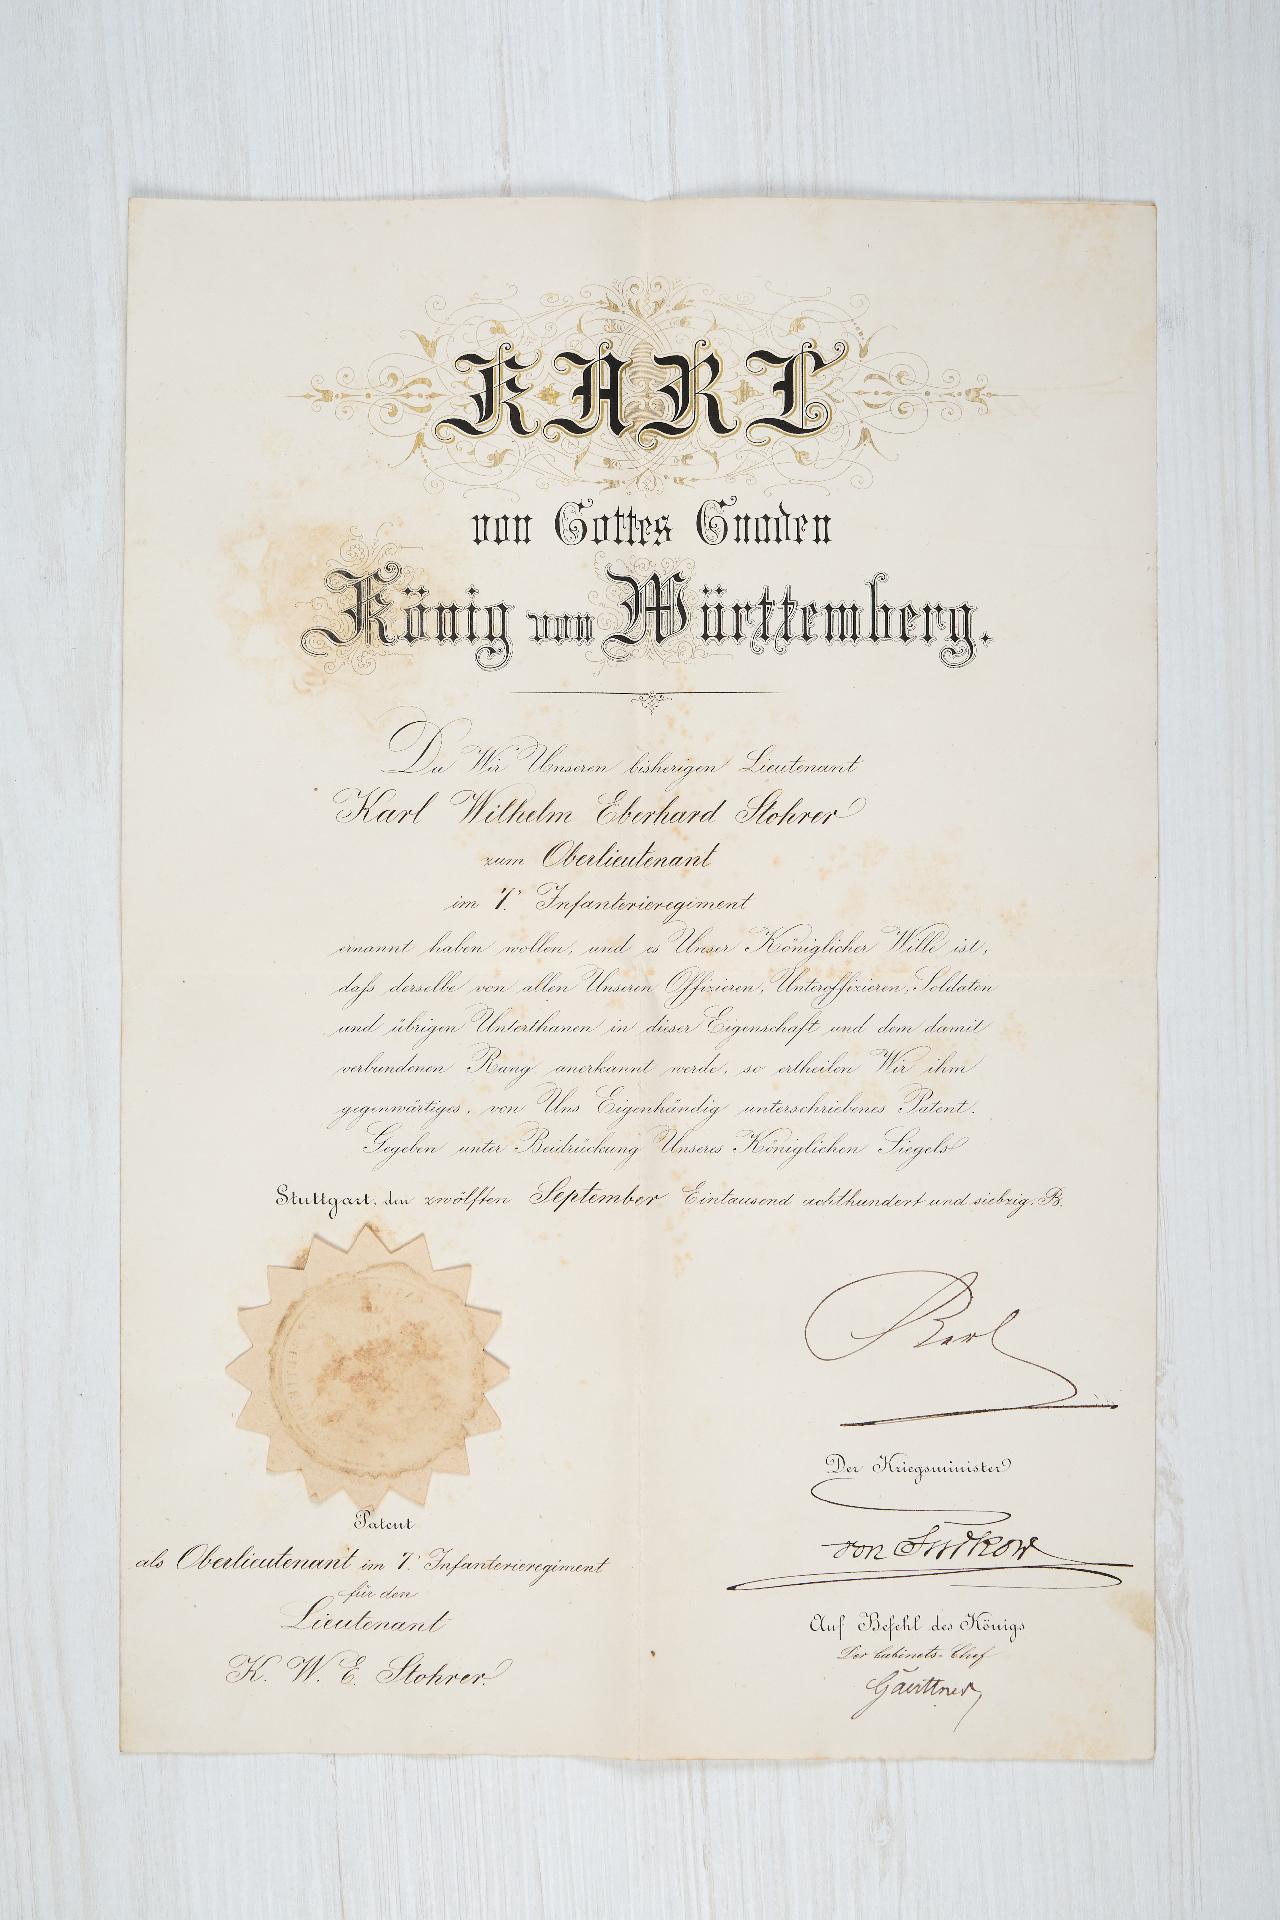 KARL
von Gottes Gnaden
König von Württemberg.
Da Wir Unseren bisherigen Lieutenant
Karl Wilhelm Eberhard Stohrer
zum Oberlieutenant
im 7. Infanterieregiment
ernannt haben wollen, und es Unser Königlicher Wille ist,
daſs derselbe von allen Unseren Offizieren, Unteroffizieren, Soldaten
und übrigen Unterthanen in dieser Eigenschaft und dem damit
verbundenen Rang anerkannt werde, so ertheilen Wir ihm
gegenwärtiges, von Uns Eigenhändig unterschriebenes Patent.
Gegeben unter Beidrückung Unseres Königlichen Siegels
Stuttgart, den zwölften September Eintausend achthundert und siebzig. B.
Karl
Der Kriegsminister
von Suckow
Patent
als Oberlieutenant im 7. Infanterieregiment
für den
Lieutenant
K. W. E. Stohrer.
Auf Befehl des Königs
Der Cabinets-Chef